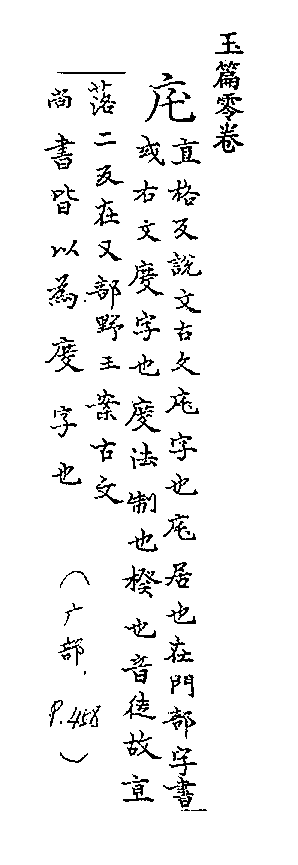 玉篇零卷
㡯直格反說文古文庑字也庑居也在門部字書
或右文度字也度法制也揆也音徒故直
落二反在又部野王案古文
尚書皆以為度字也
(广部.P.458)